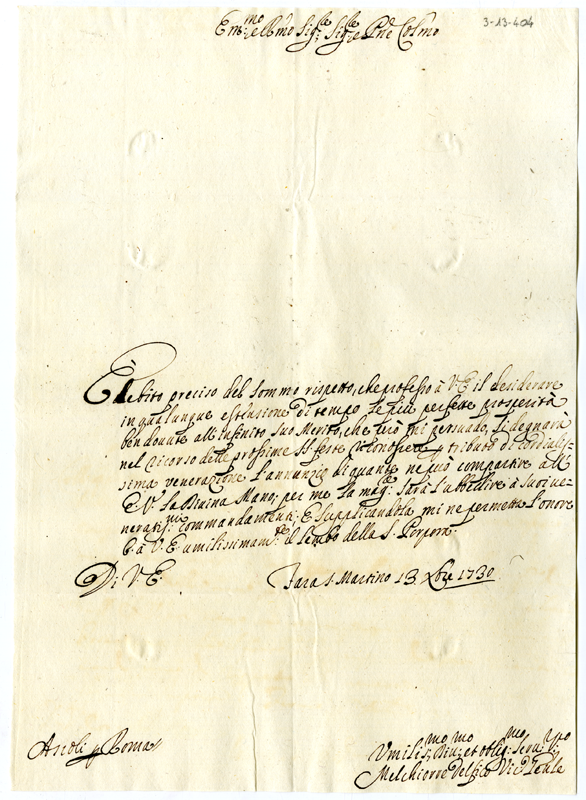 3-13-404
Em.mo e R.mo Sig.re Sig.re e Pne Col.mo
È debito preciso del sommo rispetto, che professo à V. E. il desiderare
in qualunque estensione di tempo le più perfette prosperità
ben dovute all'infinito suo Merito, che però mi persuado, si degnarà
nel ricorso delle prossime SS. feste riconoscere p tributo di cordialis=
sima venerazione l'annunzio di quante ne può compartire all'
E. V. la Divina Mano; per me la mag.re sarà l'ubbidire à suoi ve=
nerat.mi commandamenti; E supplicandola mi ne permetta l'onore
b. à V. E. umilissimam.te il lembo della S. Porpora.
Di V. E.
Fara S. Martino 13. Xbre 1730
Ascoli p Roma
Vmilis.mo Div.mo et oblig.mo Serv. V.ro
Melchiorre Delfico Vic.